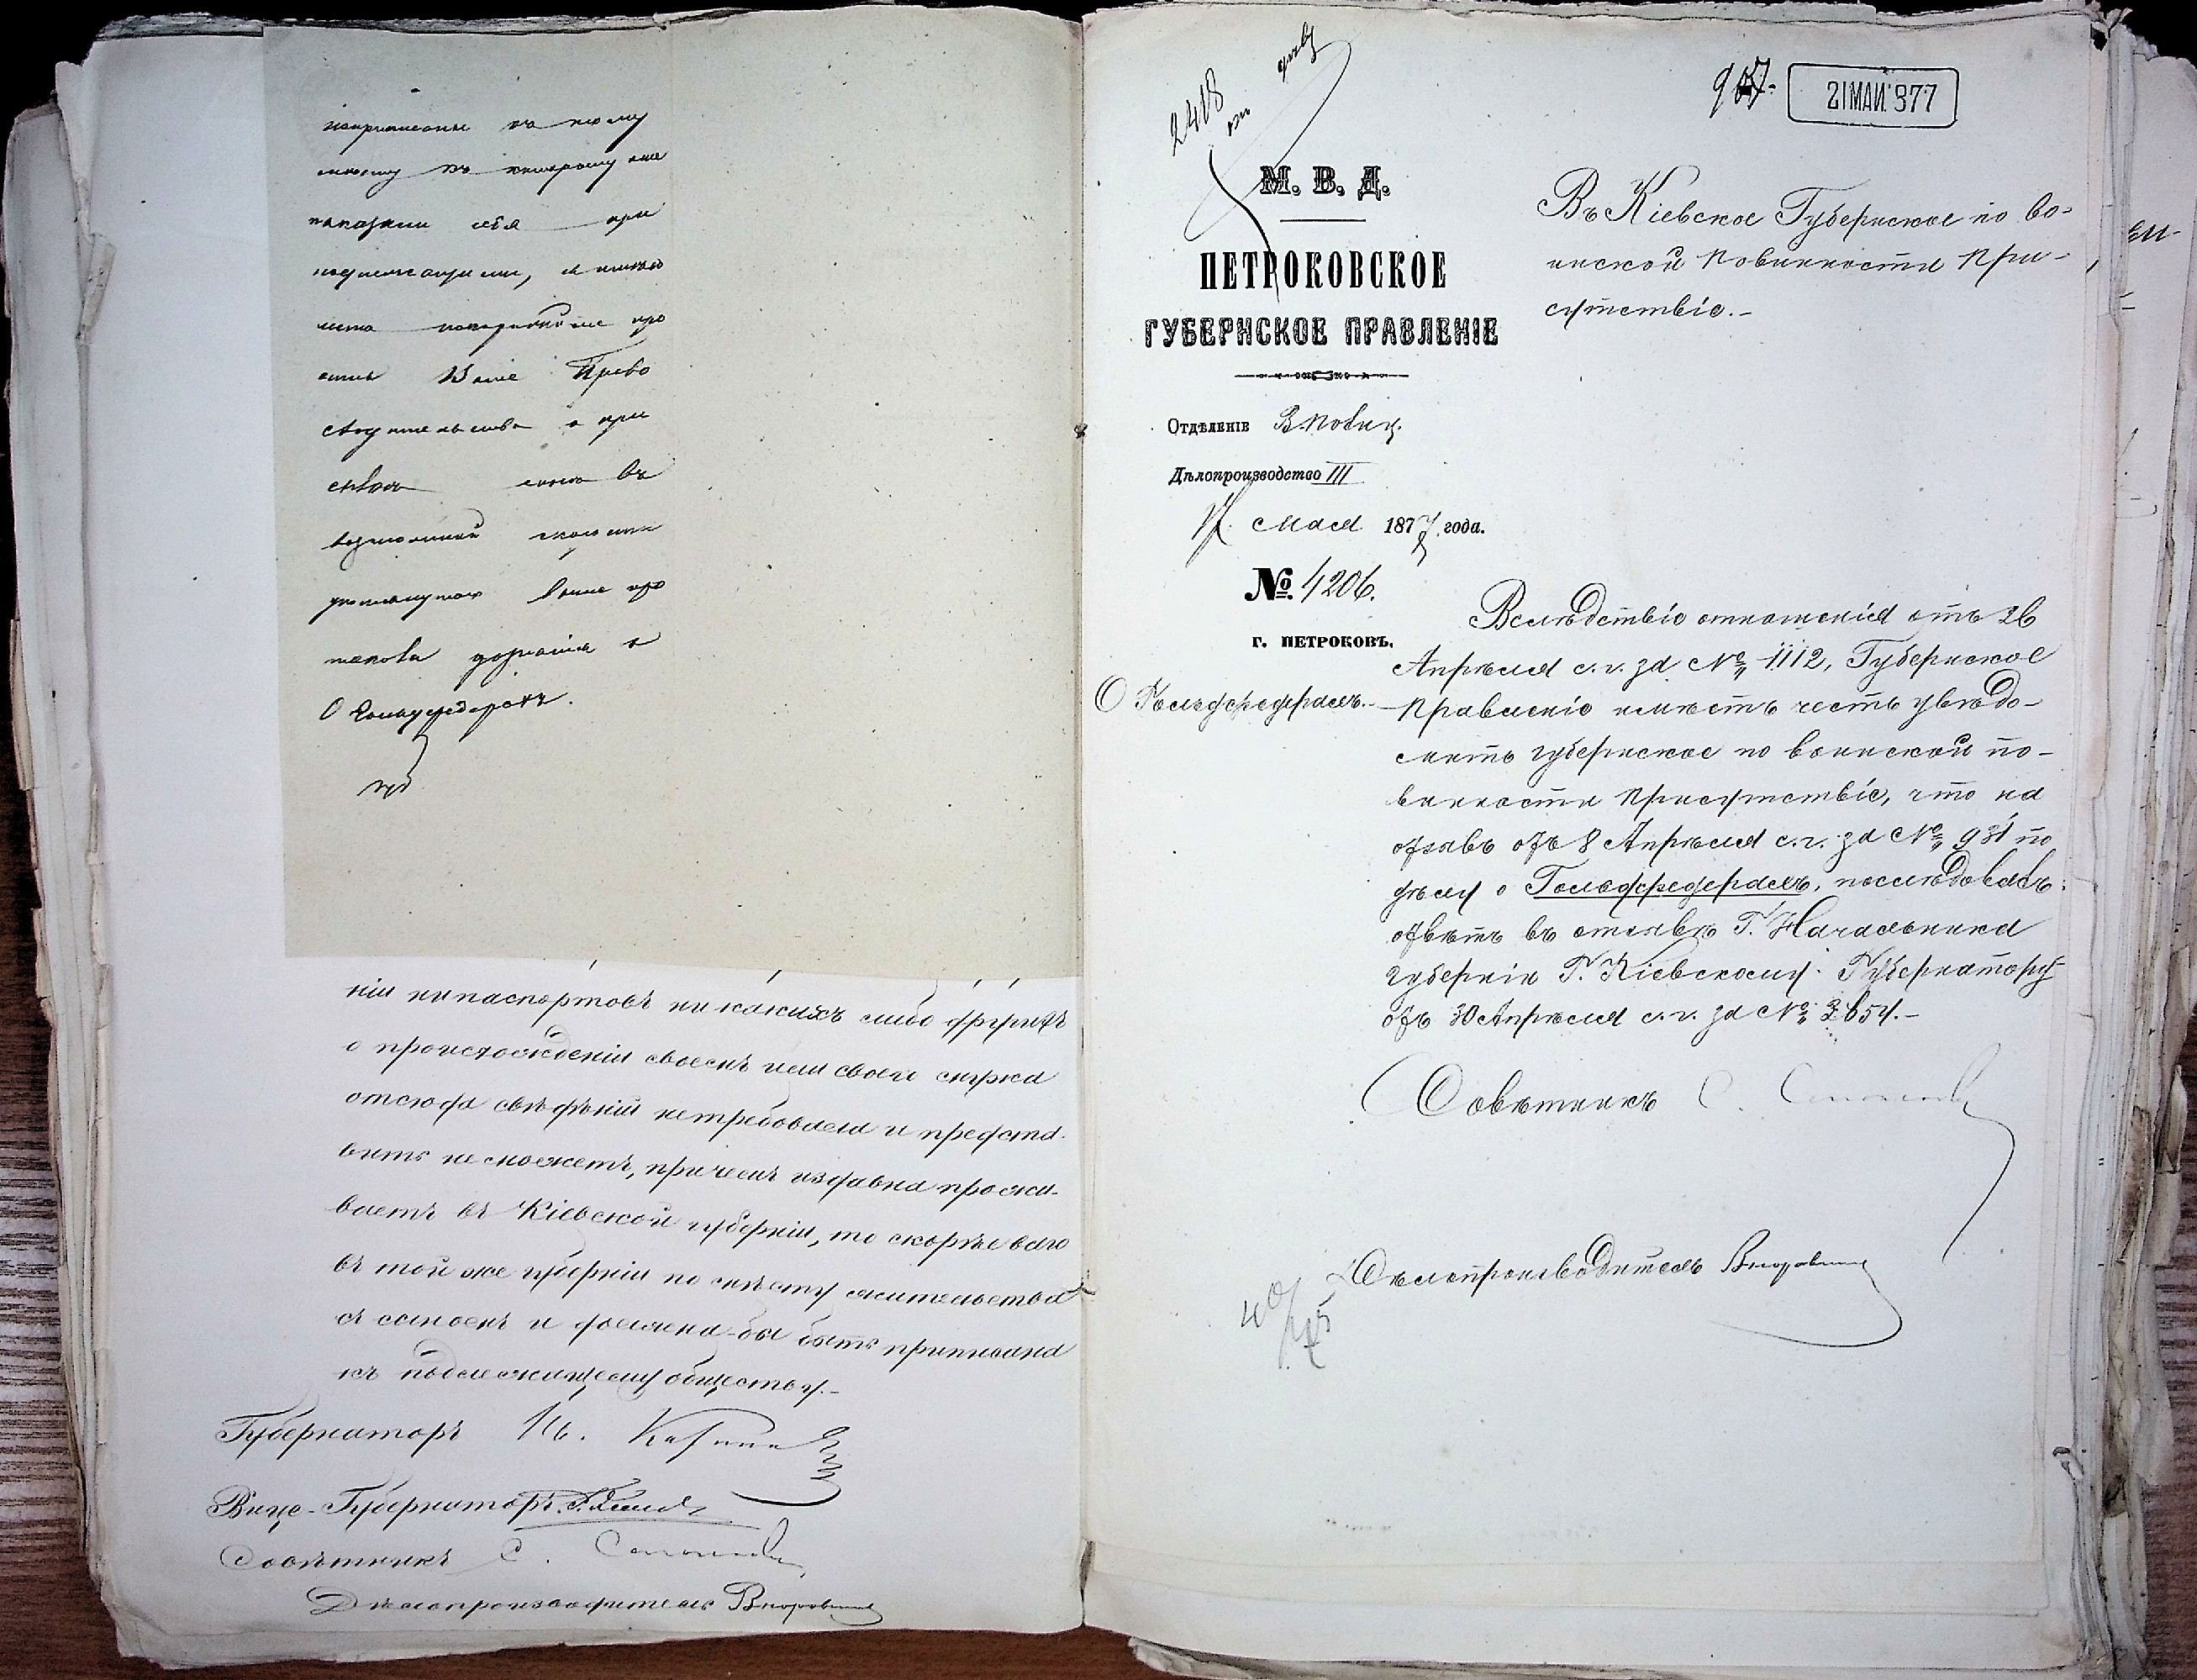 къ тому
къ которому она
себя при
подлежащими, а также
про
сить Ваше Прево
сходительство о при
сылкѣ въ
возможной скорости
выше про
токола дознанія о
О Гольдфедерѣ.
ніи ни паспортовъ ни какихъ либо другихъ
о происхожденіи своемъ или своего мужа
отсюда свѣдѣній не требовала и предста-
вить не можетъ, при чемъ издавна прожи-
ваетъ въ Кіевской губерніи, то скорѣе всего
въ той же губерніи по мѣсту жительства
съ сыномъ и должна-бы быть приписана
къ подлежащему обществу.-
Губернаторъ
Вице-Губернаторъ
Совѣтникъ
Дѣлопроизводитель
2418
21 МАЯ 877
М. В. Д.
ПЕТРОКОВСКОЕ
ГУБЕРНСКОЕ ПРАВЛЕНІЕ
Отдѣленіе В. Повин.
Дѣлопроизводство III
17 Мая 1877 года.
№ 4206.
г. ПЕТРОКОВЪ.
О Гольдфедерѣ.-
Въ Кіевское Губернское по во-
инской повинности При-
сутствіе.-
Вслѣдствіе отношенія отъ 26
Апрѣля с. г. за № 1112, Губернское
Правленіе имѣетъ честь увѣдо-
мить Губернское по воинской по-
винности Присутствіе, что на
отзывъ отъ 8 Апрѣля с. г. за № 931 по
дѣлу о Гольдфедерахъ, послѣдовалъ
отвѣтъ въ отзывѣ Г. Начальника
Губерніи Г. Кіевскому Губернатору
отъ 30 Апрѣля с. г. за № 3654.-
Совѣтникъ
Дѣлопроизводитель